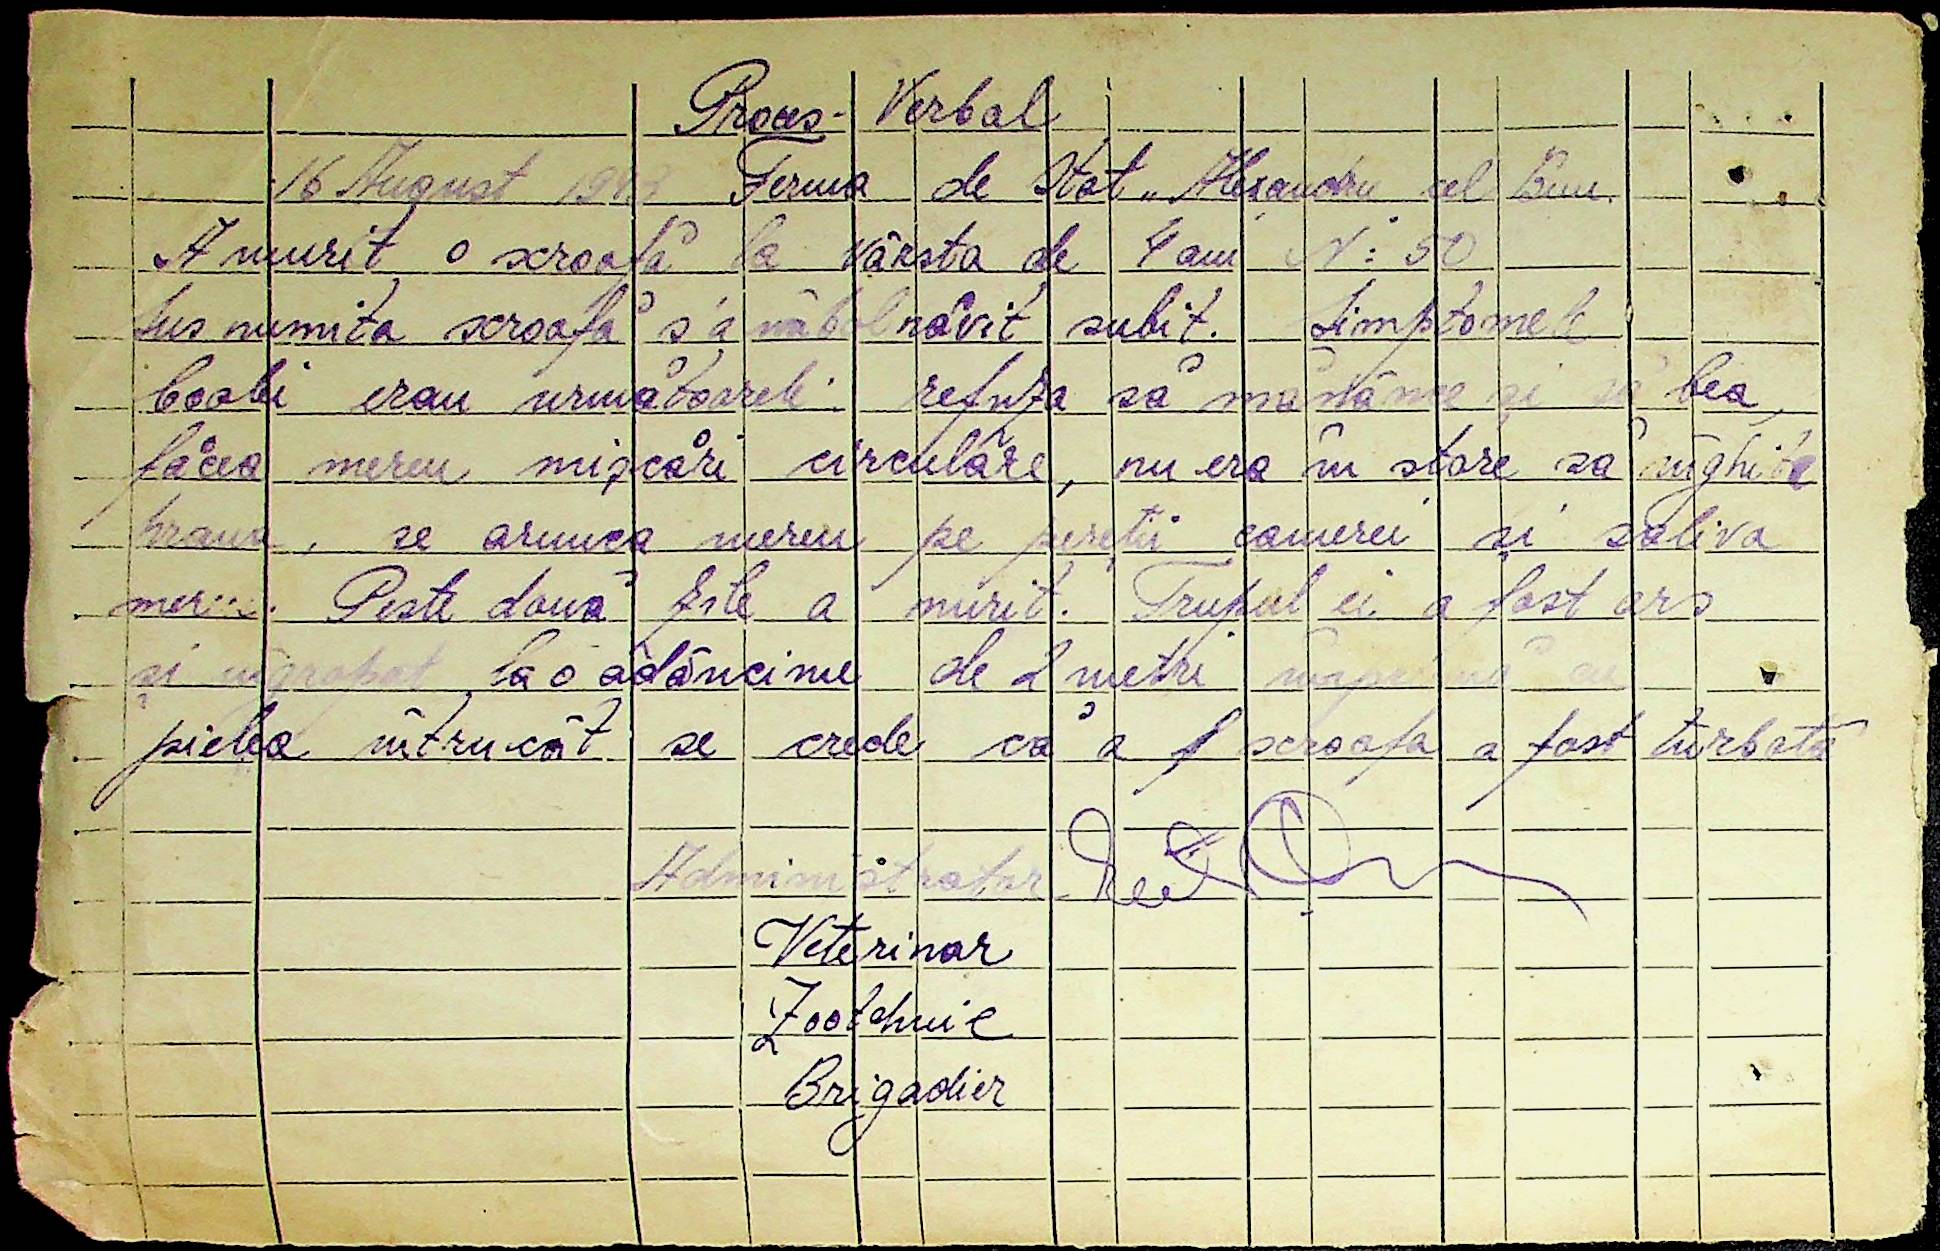 Proces-Verbal
16 August Ferma de Stat „Alexandru cel Bun
A murit o scroafă la vârsta de 4 ani N: 50
Sus numita scroafă s'a înbolnăvit subit. Simptomele
boalei erau următoarele: refuza să mănânce și să bea,
făcea mereu mișcări circulare, nu era în stare să înghită
hrana, se arunca mereu pe pereții camerei și saliva
mereu. Peste două zile a murit. Trupul ei a fost ars
și îngropat la o adâncime de 2 metri împreună cu
pielea întrucât se crede că a f scroafa a fost turbată
Administrator
Veterinar
Zootehnic
Brigadier